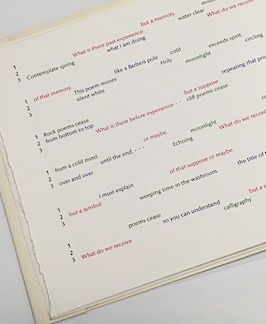 What is there past experience
but a memory.
water clear
What do we recei
1
2
3
Contemplate spring
what I am doing
Holy
cold
moonlight
exceeds spirit.
circling
1
2
3
of that memory
This poem moves
silent white.
like a Barbers pole
but a suppose
cliff poems cease
repeating that pro
1
2
3
Rock poems cease
from bottom to top
What is there before experience - -
or maybe.
Echoing
moonlight
What do we recei
1
2
3
from a cold mind
over and over
until the end. - - -
of that suppose or maybe.
the title of
1
2
3
but a symbol
I must explain
weeping time in the washroom.
but a s
1
2
3
What do we receive
poems cease
so you can understand
calligraphy